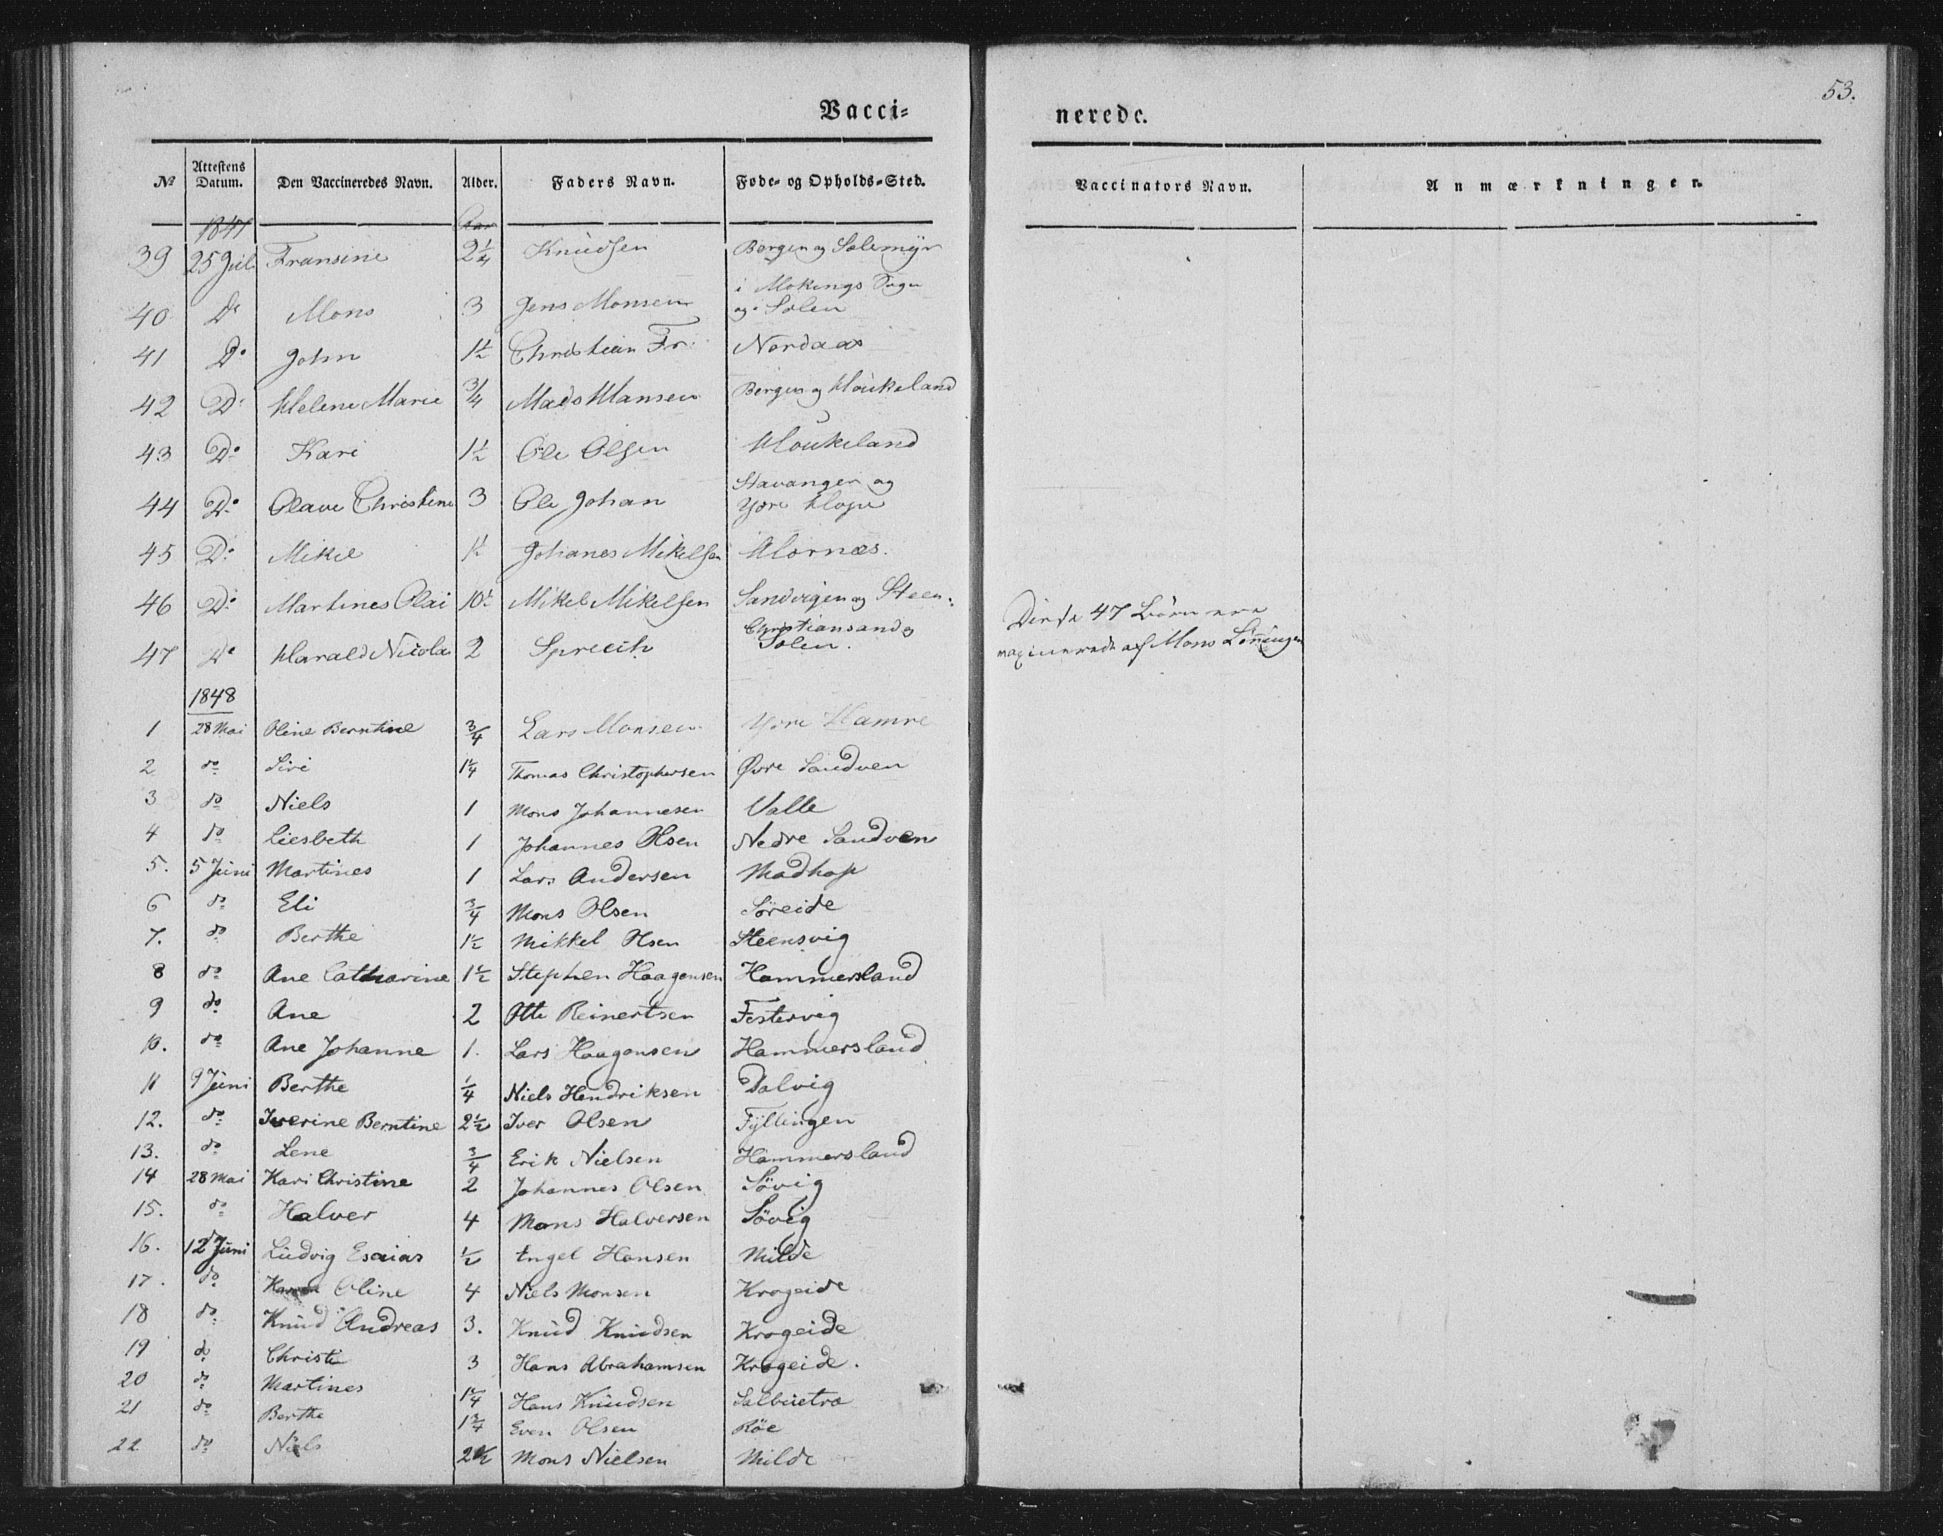 53.
Vacci= nerede.
No Attestens Datum. Den Vaccineredes Navn. Alder. Faders Navn. Føde- og Opholds-Sted. Vaccinators Navn. Anmærkninger.
1847
39 25 Jul Fransine 2 1/4 Knudsen Bergen og Solemyr
40 Do Mons 3 Jens Monsen i Mokings Sogn
og i Solen
41 Do John 1 1/2 Christian Fr. Nordaas
42 Do Helene Marie 3/4 Mads Hansen Bergen og Houkeland
43 Do Kari 1 1/2 Ole Olsen Houkeland
44 Do Olave Christine 3 Ole Johan Stavanger og
Yore Hope
45 Do Mikel 1 1/2 Johanes Mikelsen Hornæs.
46 Do Martines Olai 10 1/2 Mikel Mikelsen Sandvigen og Steen
47 Do Harald Nicola 2 Spreeih Christiansand og
Solen.
Disse 47 Børn ere
vaxinerede af Mons Løningen
1848
1 28 Mai Oline Berntine 3/4 Lars Monsen Yore Hamre
2 do Siri 1 1/4 Thomas Christophersen Øvre Sandven
3 do Niels 1 Mons Johannesen Valle
4 do Liesbeth 1 Johannes Olsen Nedre Sandven
5. 5 Juni Martines 1 Lars Andersen Madhop
6 do Eli 3/4 Mons Olsen Søreide
7. do Berthe 1 1/2 Mikkel Olsen Steensvig
8 do Ane Catharine 1 1/2 Stephen Haagensen Hammersland
9 do Ane 2 Otte Reinertsen Festervig
10. do Ane Johanne 1. Lars Haagensen Hammersland
11 9 Juni Berthe 1/4 Niels Hendriksen Dalvig
12. do Iverine Berntine 2 1/2 Iver Olsen Fyllingen
13. do Lene 3/4 Erik Nielsen Hammersland
14 28 Mai Kari Christine 2 Johannes Olsen Søvig
15. do Halver 4 Mons Halversen Søvig
16. 12 Juni Ludvig Esaias 1/2 Engel Hansen Milde
17. do Oline 4 Niels Monsen Krogeide
18 do Knud Andreas 3. Knud Knudsen Krogeide
19 do Christi 3 Hans Abrahamsen Krogeide.
20 do Martines 1 1/4 Hans Knudsen Salbuetra
21 do Berthe 1 3/4 Even Olsen Røe
22 do Niels 2 1/2 Mons Nielsen Milde